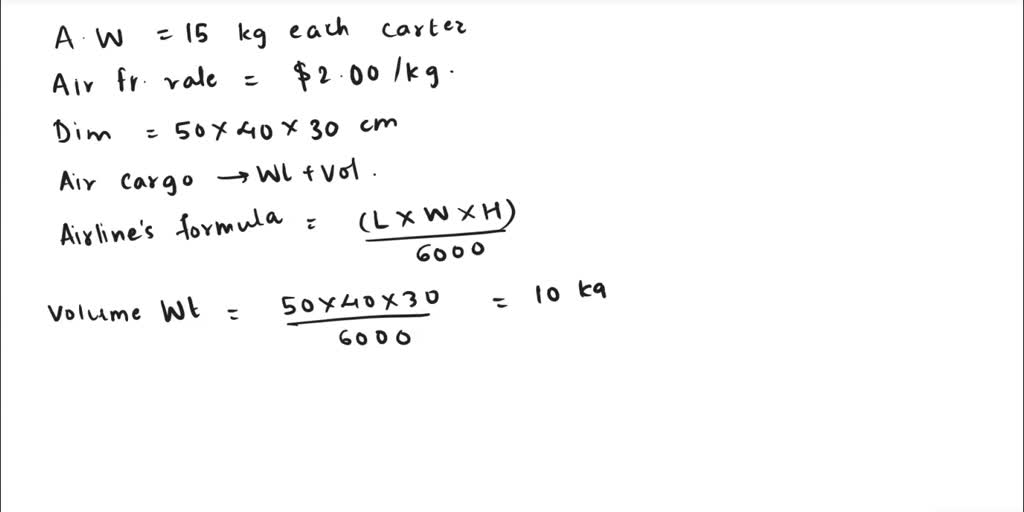 A. W = 15 kg each carter
Air fr. rale = $2.00/kg.
Dim = 50 x 40 x 30 cm
Air cargo → Wt + Vol.
Airline's formula = (L x W x H) / 6000
Volume Wt = 50 x 40 x 30 / 6000 = 10 kg